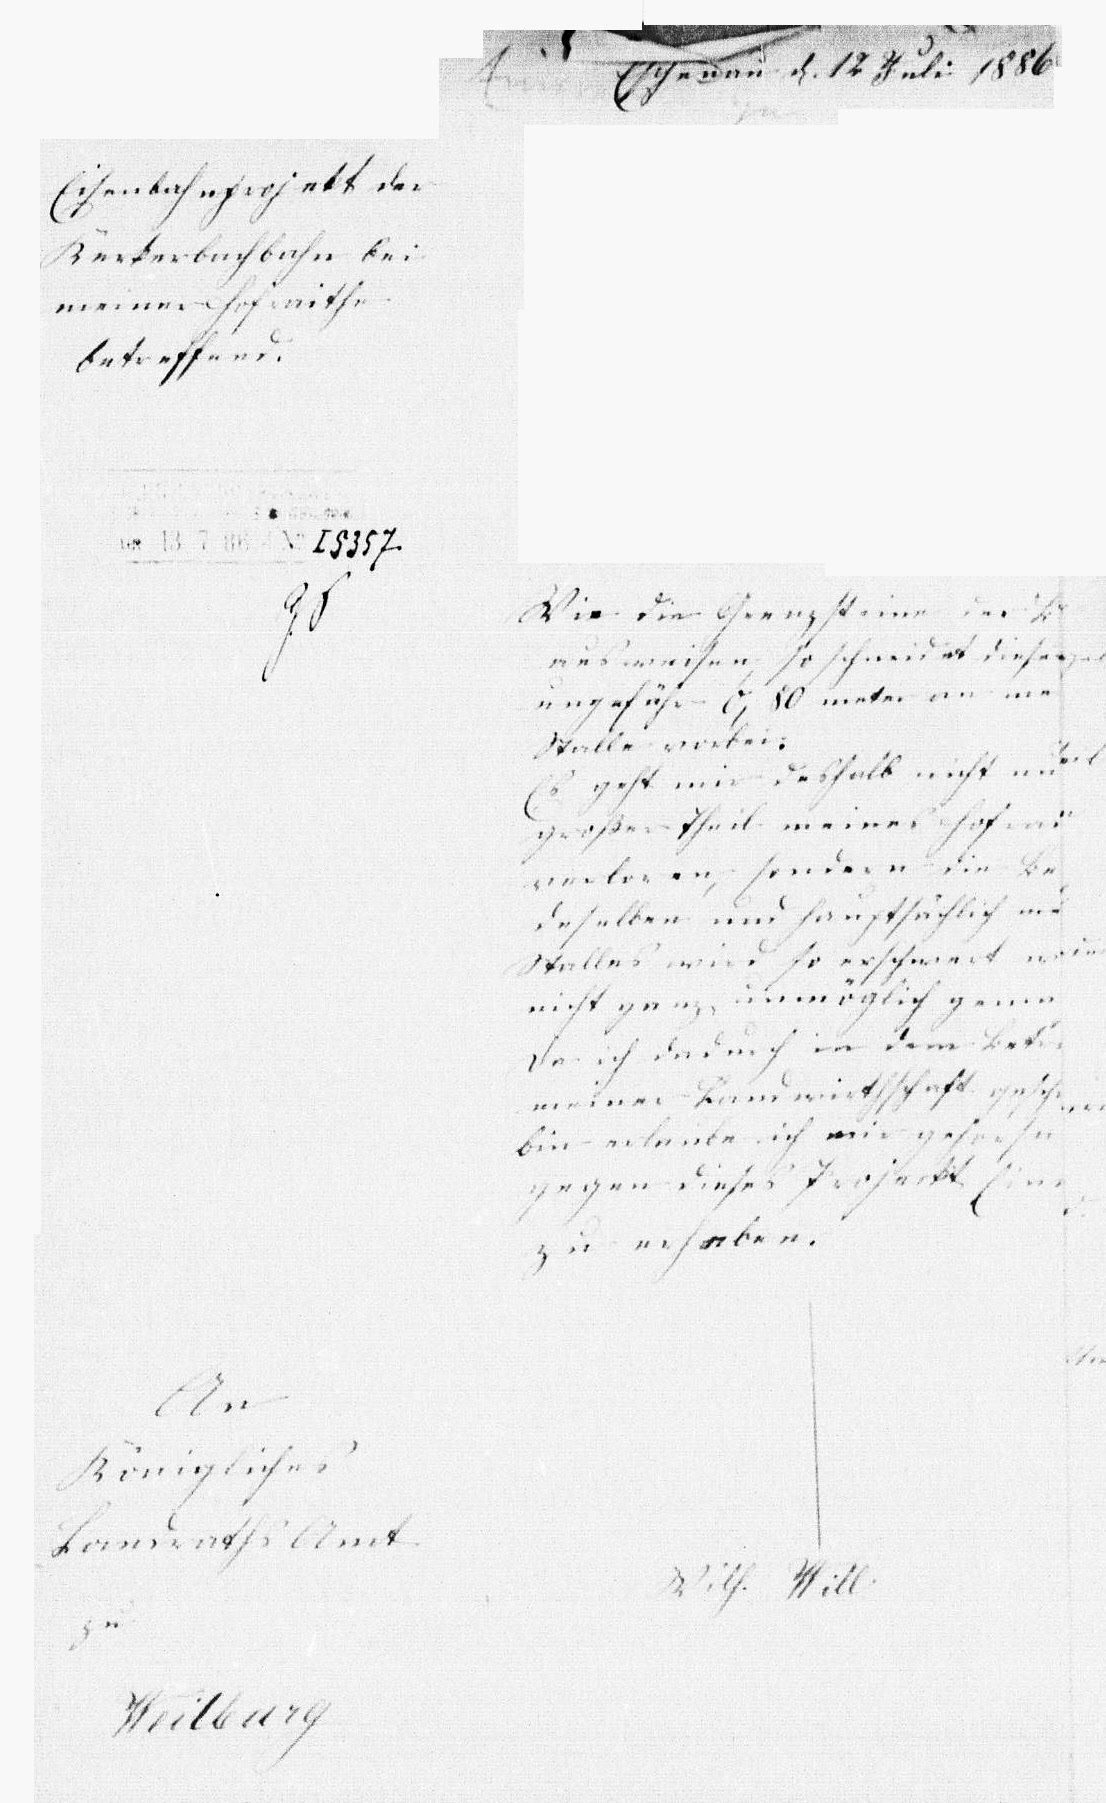 Eschenau d. 12 Juli 1886
Eisenbahnprojekt der
Kerkerbachbahn bei
meiner Hofraithe
betreffend.
13 7 86 No I 5357
Wie die Grenzsteine der
ausweisen, so schneidet diese
ungefähr 0,80 meter an me
Stalle vorbei.
Es geht mir deshalb nicht nu
großer Theil meines Hofrai
verloren, sondern die Be
deselben und hauptsächlich
Stalles wird so erschwert
nicht ganz unmöglich gema
Da ich dadurch in dem Betri
meiner Landwirthschaft gesch
bin erlaube ich mir gehorsa
gegen dieses Projeckt Ein
zu erheben.
An
Königliches
Landraths Amt
zu
Weilburg
Wilh. Will.